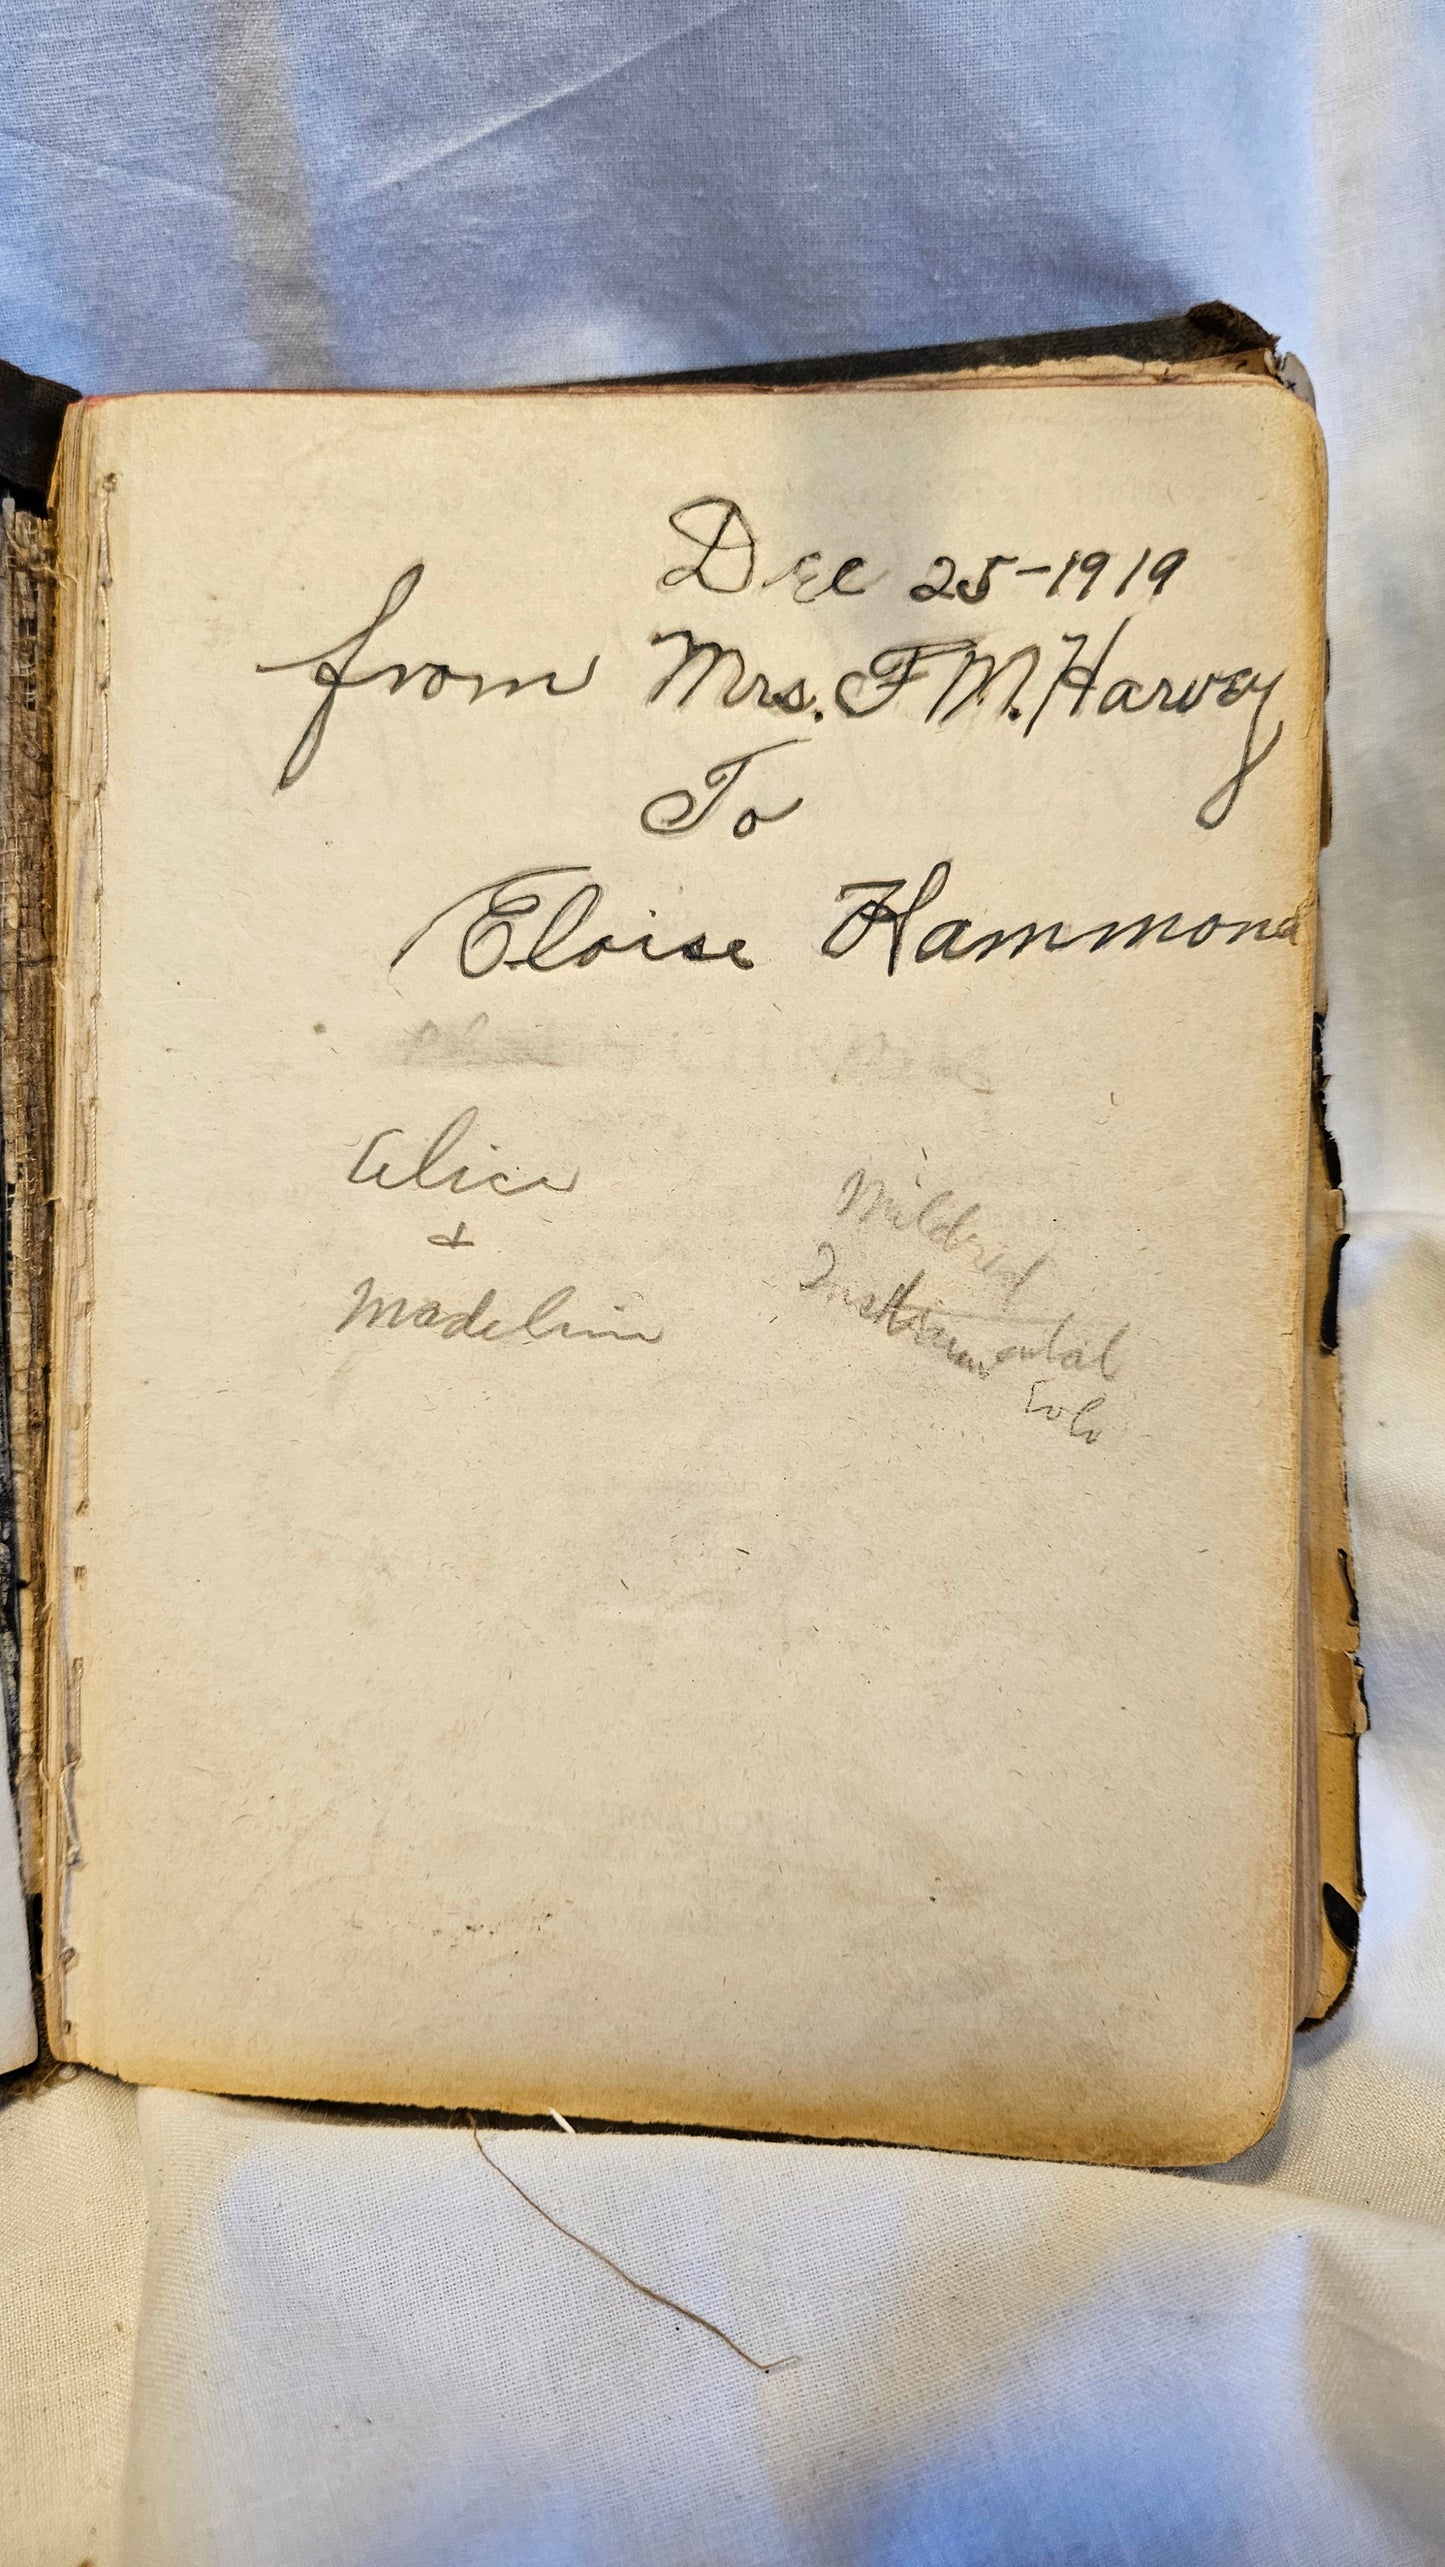 Dec 25-1919
from Mrs. F M. Harvey
To
Eloise Hammond
Alice
&
Madeline
Mildred
Instrumental
Solo